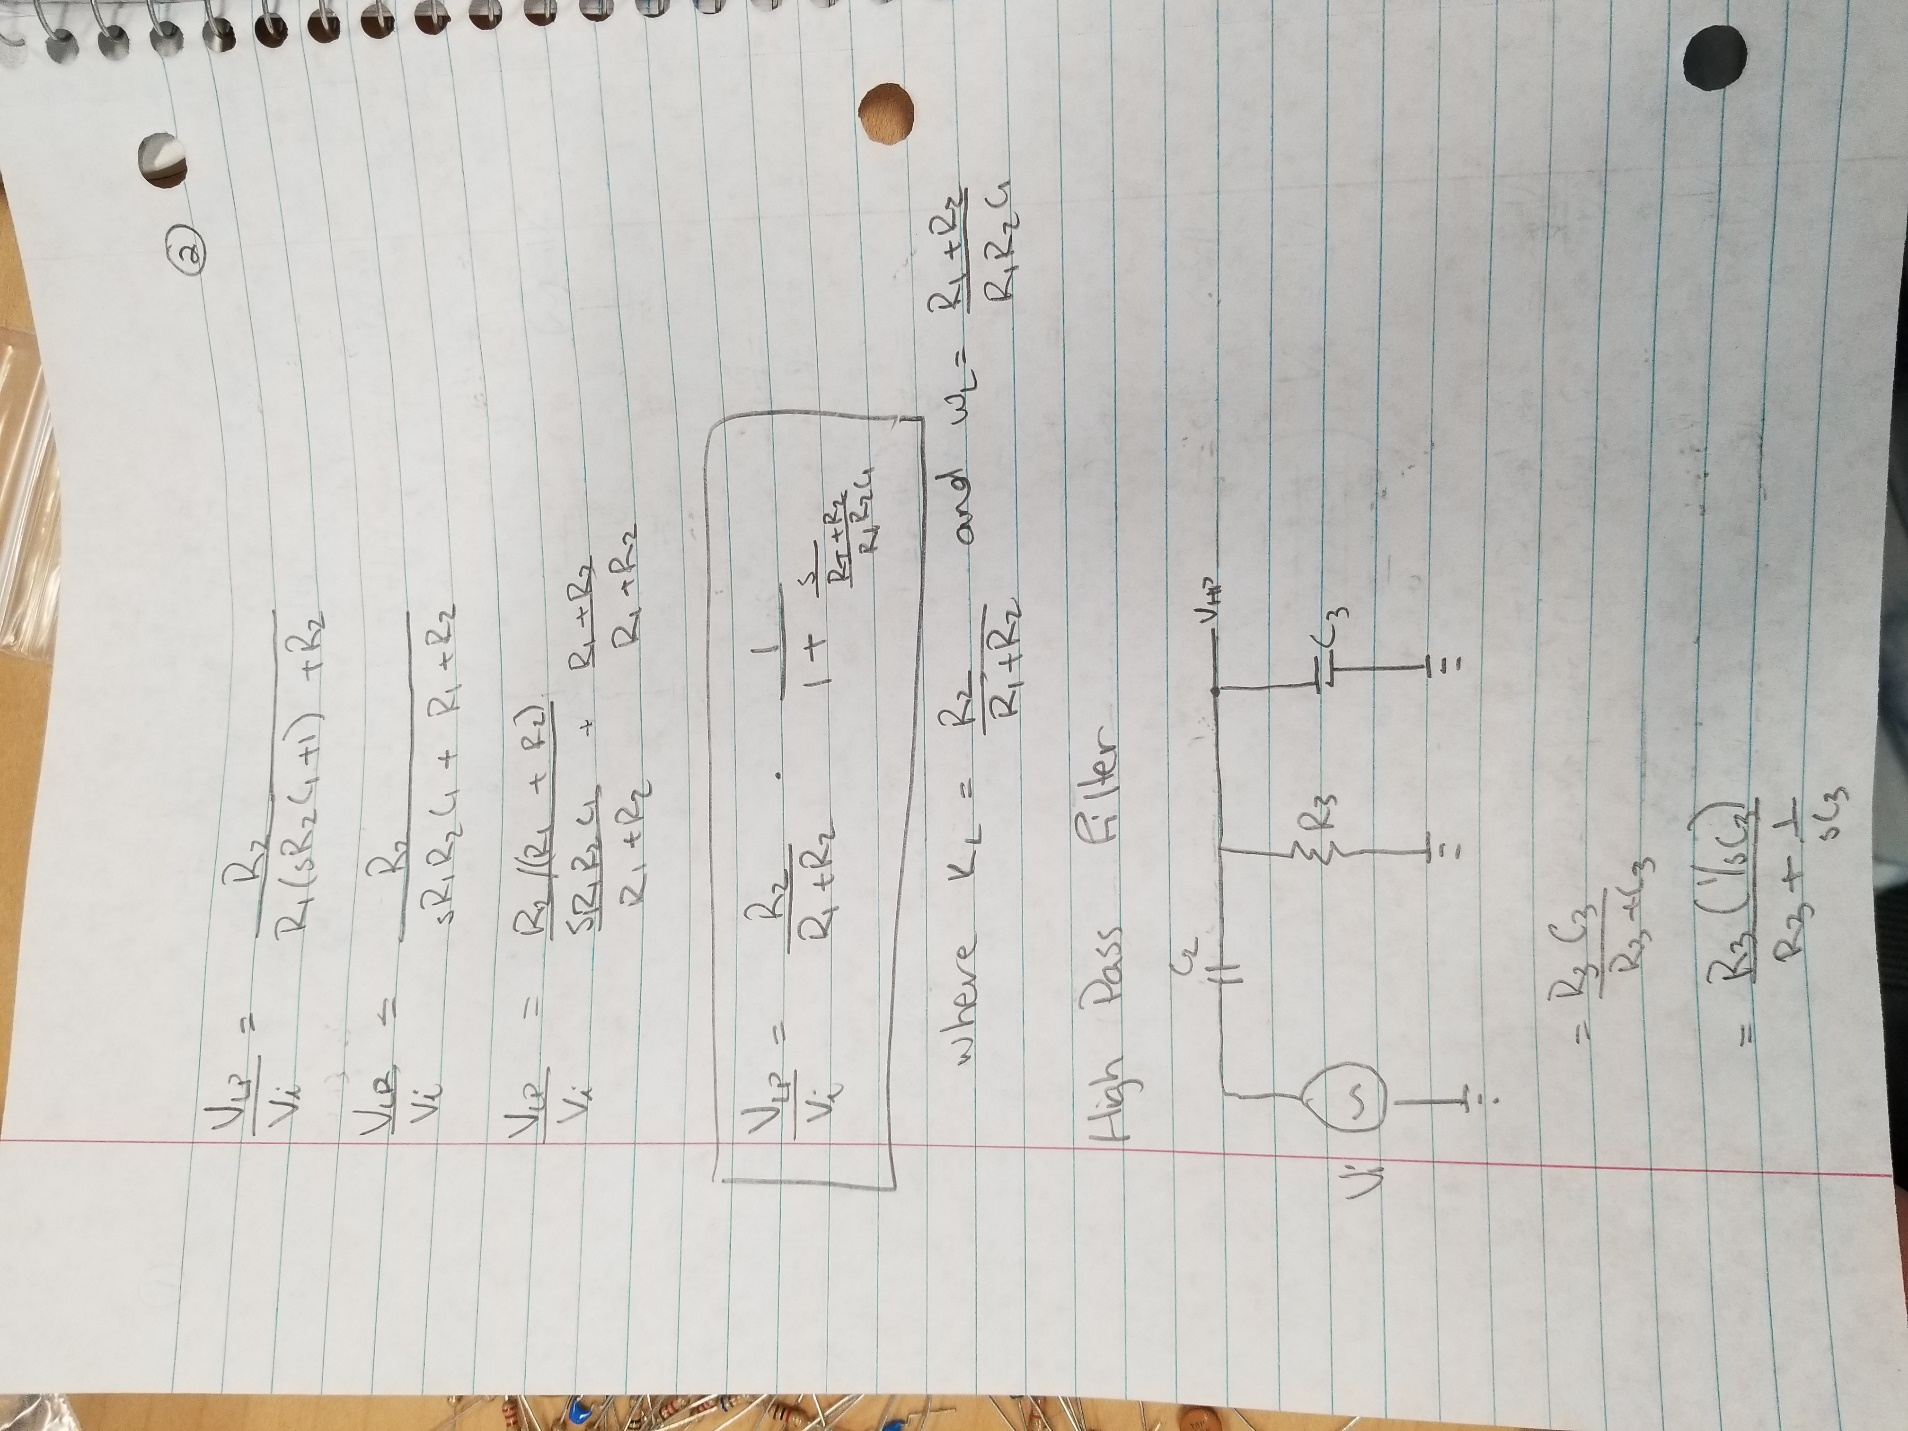 ②
V_LP/V_i = R_2/(R_1(sR_2C_1+1) + R_2)
V_LP/V_i = R_2/(sR_1R_2C_1 + R_1 + R_2)
V_LP/V_i = (R_2/(R_1 + R_2))/((SR_1R_2C_1)/(R_1 + R_2) + (R_1 + R_2)/(R_1 + R_2))
V_LP/V_i = R_2/(R_1+R_2) · 1/(1 + s/((R_1+R_2)/(R_1R_2C_1)))
where K_L = R_2/(R_1+R_2) and ω_L = (R_1+R_2)/(R_1R_2C_1)
High Pass Filter
C_2
V_HP
V_i
R_3
C_3
= R_3C_3/(R_3+C_3)
= R_3(1/sC_3)/(R_3 + 1/sC_3)